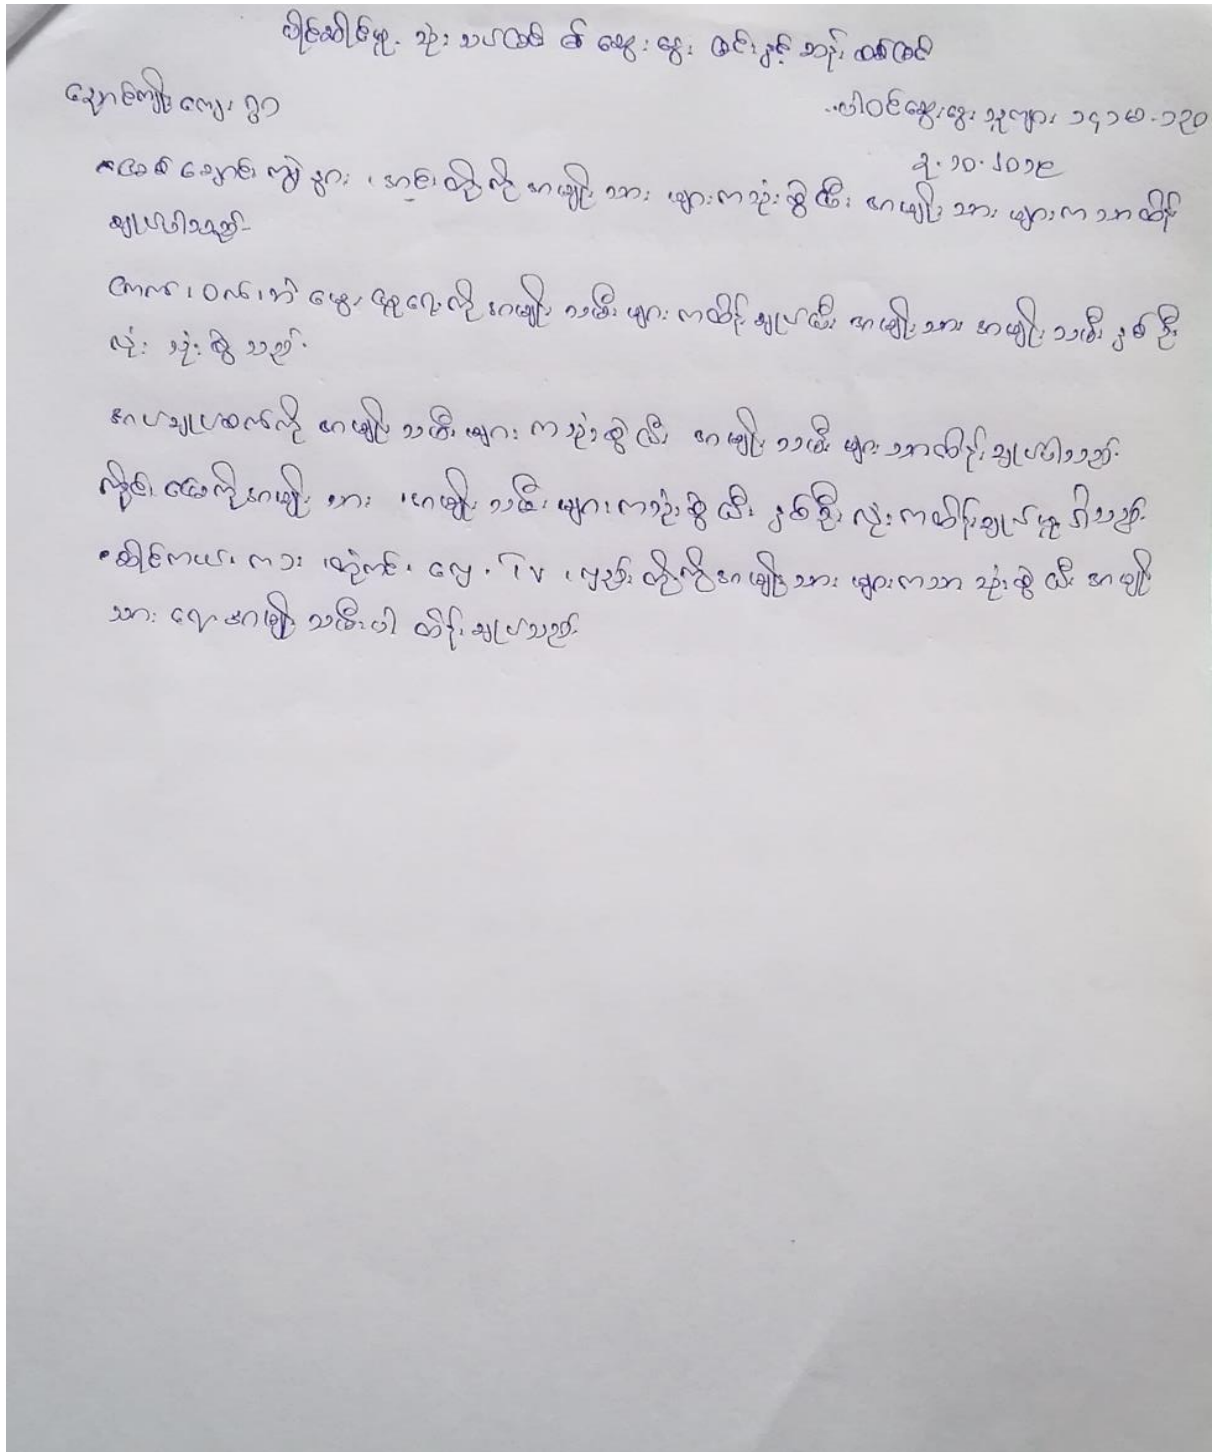 ပိုင်ဆိုင်မှု. သုံး သပ်ခြင်း ဆွေး နွေး ခြင်း နှင့်
ညောင်ကျိုး ကျေး ရွာ
ပါဝင်ဆွေးနွေး သူများ ၁၄၁မ-၁၃၀
၃.၁၀.၂၀၁၉
ကျွဲ နွား တို့ကို အမျိုး သား များကသုံးစွဲပြီး အမျိုး သား များက သာထိန်း
ချုပ်ပါသည်
ကြက်၊ ဝက်၊ ဘဲ မွေး မြူရေးကို အမျိုး သမီး များ ကထိန်း ချုပ်ပြီး အမျိုးသား အမျိုး သမီး နှစ် ဦး
လုံး သုံး စွဲ သည်.
အပ်ချုပ်စက်ကို အမျိုး သမီး များ ကသုံးစွဲပြီး အမျိုး သမီး များ သာထိန်းချုပ်ပါသည်.
မြေကိုအမျိုး သား ၊ အမျိုး သမီး များကသုံးစွဲ ပြီး နှစ်ဦး လုံး ကထိန်းချုပ်မှု ရှိသည်.
ဆိုင်ကယ်၊ ကား ၊ ထွန်စက်၊ လှေ ၊ TV ၊ လှည်း တို့ကိုအမျိုးသား များကသာ သုံးစွဲ ပြီး အမျိုး
သား ရော အမျိုး သမီးပါ ထိန်း ချုပ်သည်.